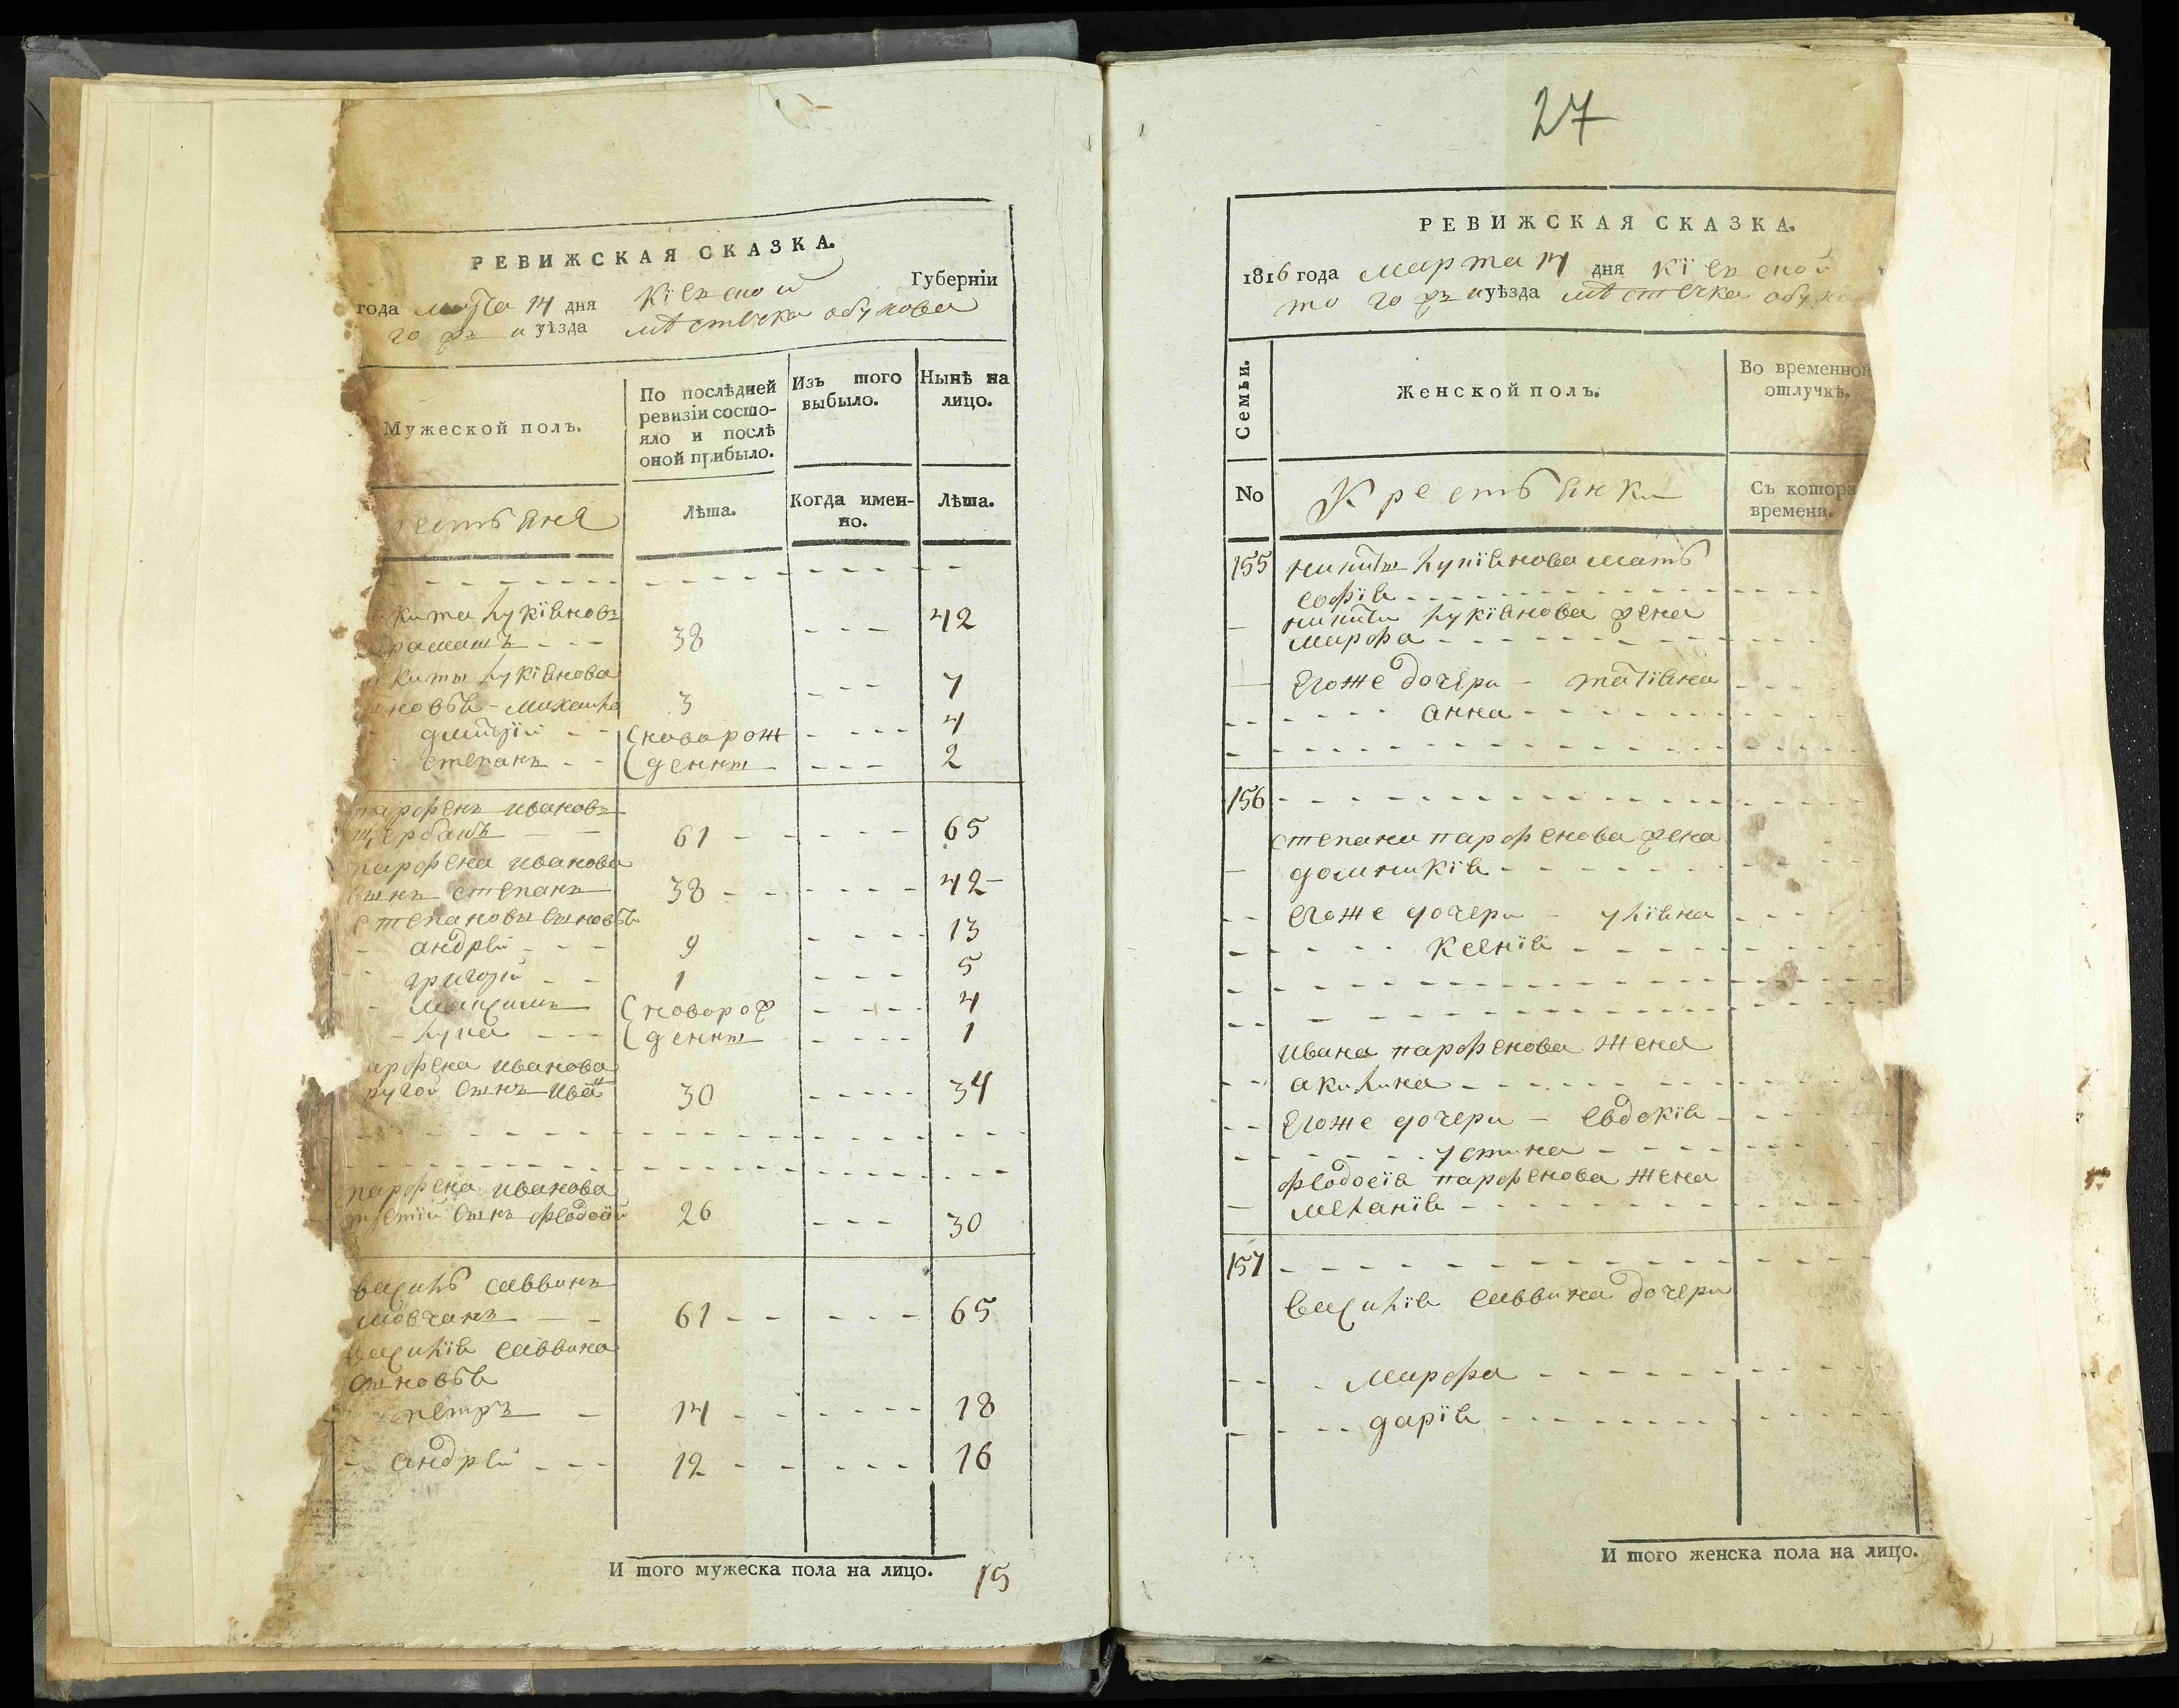 РЕВИЖСКАЯ СКАЗКА.
года марта 14 дня Кіевской Губерніи
го ж и уѣзда мѣстечка обухова
Мужеской полъ.
По послѣдней ревизіи состояло и послѣ оной прибыло.
Изъ того выбыло.
Нынѣ на лицо.
рестьяня
Лѣта.
Когда именно.
Лѣта.
кита лукіяновъ
38 42
киты лукіянова
новья - михаила 3 7
дмитрій (новорож 4
степанъ (денны 2
парфенъ ивановъ
щербакъ 61 65
парфена иванова
сынъ степанъ 38 42
степановы сыновья
андрей 9 13
григорій 1 5
максимъ (новорож 4
лука (денны 1
арфена иванова
ругой сынъ иванъ 30 34
парфена иванова
третій сынъ феодосій 26 30
василь саввинъ
мовчанъ 61 65
василія саввина
сыновья
петръ 14 18
андрей 12 16
И того мужеска пола на лицо. 15
27
РЕВИЖСКАЯ СКАЗКА.
1816 года марта 14 дня кіевской
то го ж и уѣзда мѣстечка обухо
Семьи.
Женской полъ.
Во временной отлучкѣ.
No
Крестьянки
Съ котора времени.
155 никиты лукіянова мать
софія
никиты лукіянова жена
марфа
егоже дочери - татіяна
анна
156
степана парфенова жена
домникія
егоже дочери - уліяна
ксенія
ивана парфенова жена
акилина
егоже дочери - евдокія
устина
феодосія парфенова жена
меланія
157
василія саввина дочери
марфа
дарія
И того женска пола на лицо.